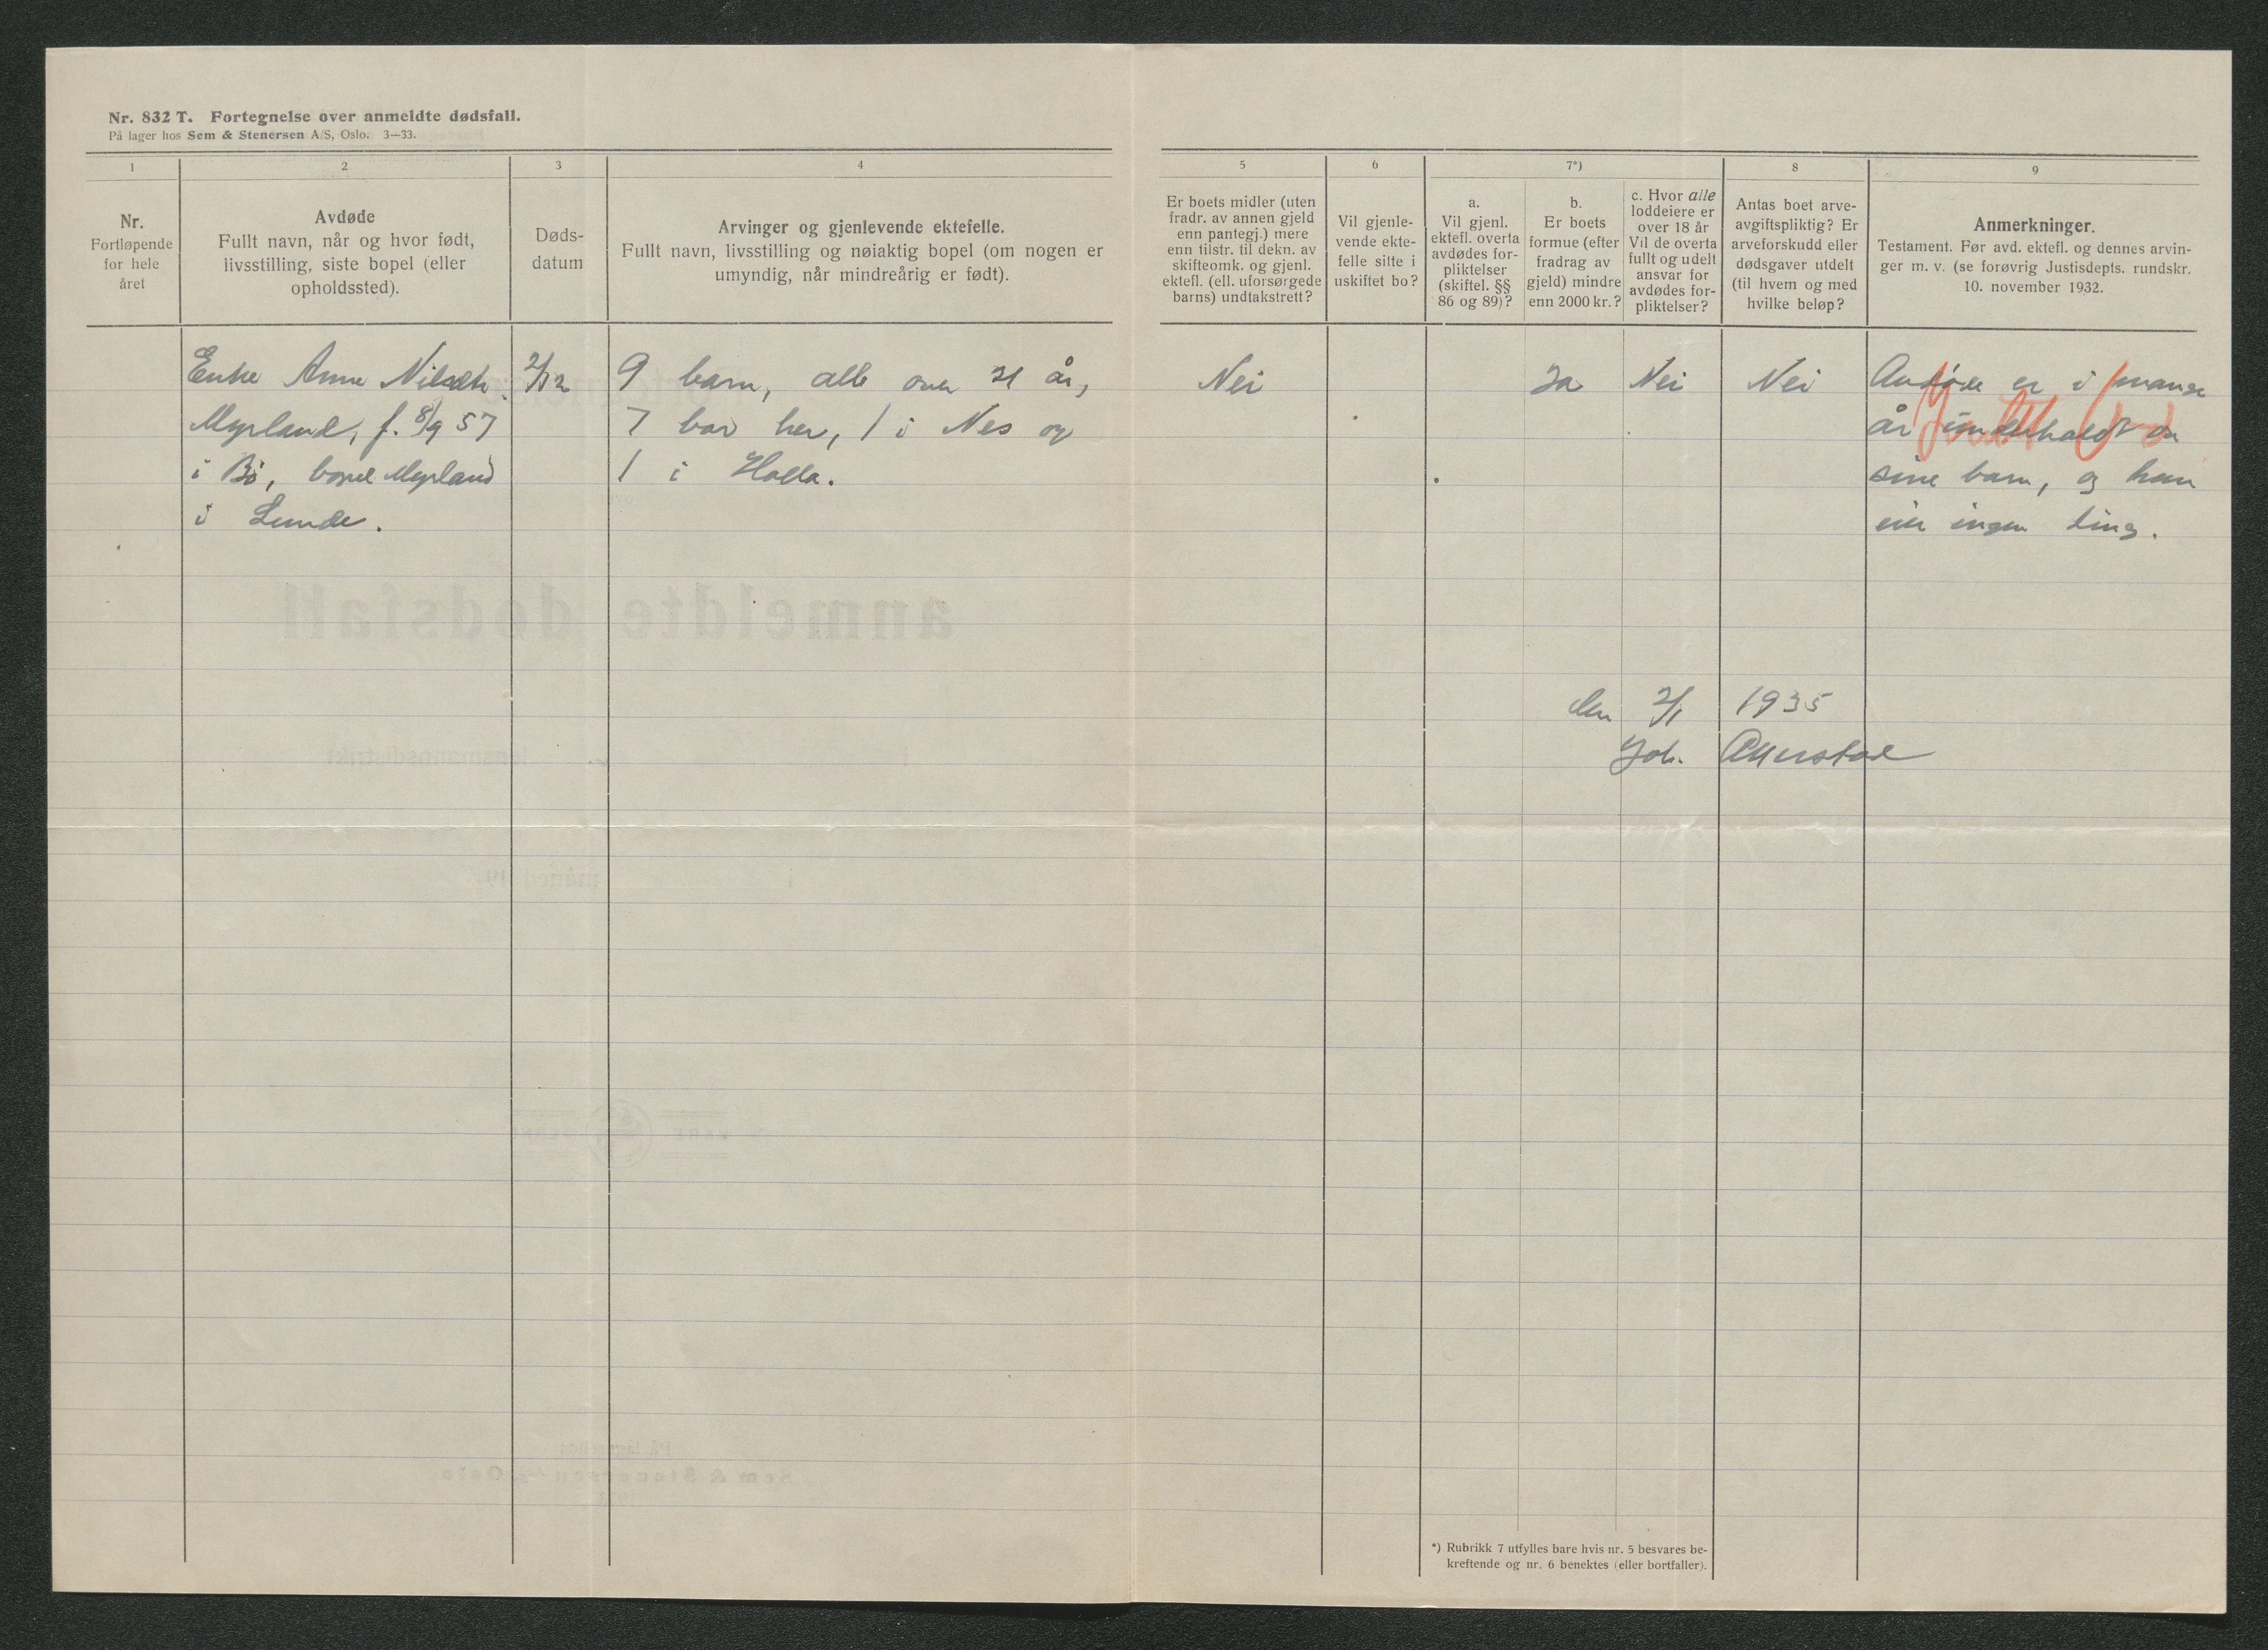 Nr. 832 T. Fortegnelse over anmeldte dødsfall.
På lager hos Sem & Stenersen A/S, Oslo. 3—33.
1
2
3
4
5
6
7*)
8
9
Nr.
Fortløpende
for hele
året
Avdøde
Fullt navn, når og hvor født,
livsstilling, siste bopel (eller
opholdssted).
Døds-
datum
Arvinger og gjenlevende ektefelle.
Fullt navn, livsstilling og nøiaktig bopel (om nogen er
umyndig, når mindreårig er født).
Er boets midler (uten
fradr. av annen gjeld
enn pantegj.) mere
enn tilstr. til dekn. av
skifteomk. og gjenl.
ektefl. (ell. uforsørgede
barns) undtakstrett?
Vil gjenle-
vende ekte-
felle sitte i
uskiftet bo?
a.
Vil gjenl.
ektefl. overta
avdødes for-
pliktelser
(skiftel. §§
86 og 89)?
b.
Er boets
formue (efter
fradrag av
gjeld) mindre
enn 2000 kr.?
c. Hvor alle
loddeiere er
over 18 år
Vil de overta
fullt og udelt
ansvar for
avdødes for-
pliktelser?
Antas boet arve-
avgiftspliktig? Er
arveforskudd eller
dødsgaver utdelt
(til hvem og med
hvilke beløp?
Anmerkninger.
Testament. Før avd. ektefl. og dennes arvin-
ger m. v. (se forøvrig Justisdepts. rundskr.
10. november 1932.
Enke Anne Nilsdtr.
Myrland, f. 8/9 57
i Bø, bopel Myrland
i Lunde.
2/12
9 barn, alle over 21 år,
7 bor her, 1 i Nes og
1 i Holla.
Nei
Ja
Nei
Nei
Avdøde er i mange
år underholdt av
sine barn, og hun
eier ingen ting.
den 2/1 1935
Joh. Akerstad
*) Rubrikk 7 utfylles bare hvis nr. 5 besvares be-
kreftende og nr. 6 benektes (eller bortfaller).